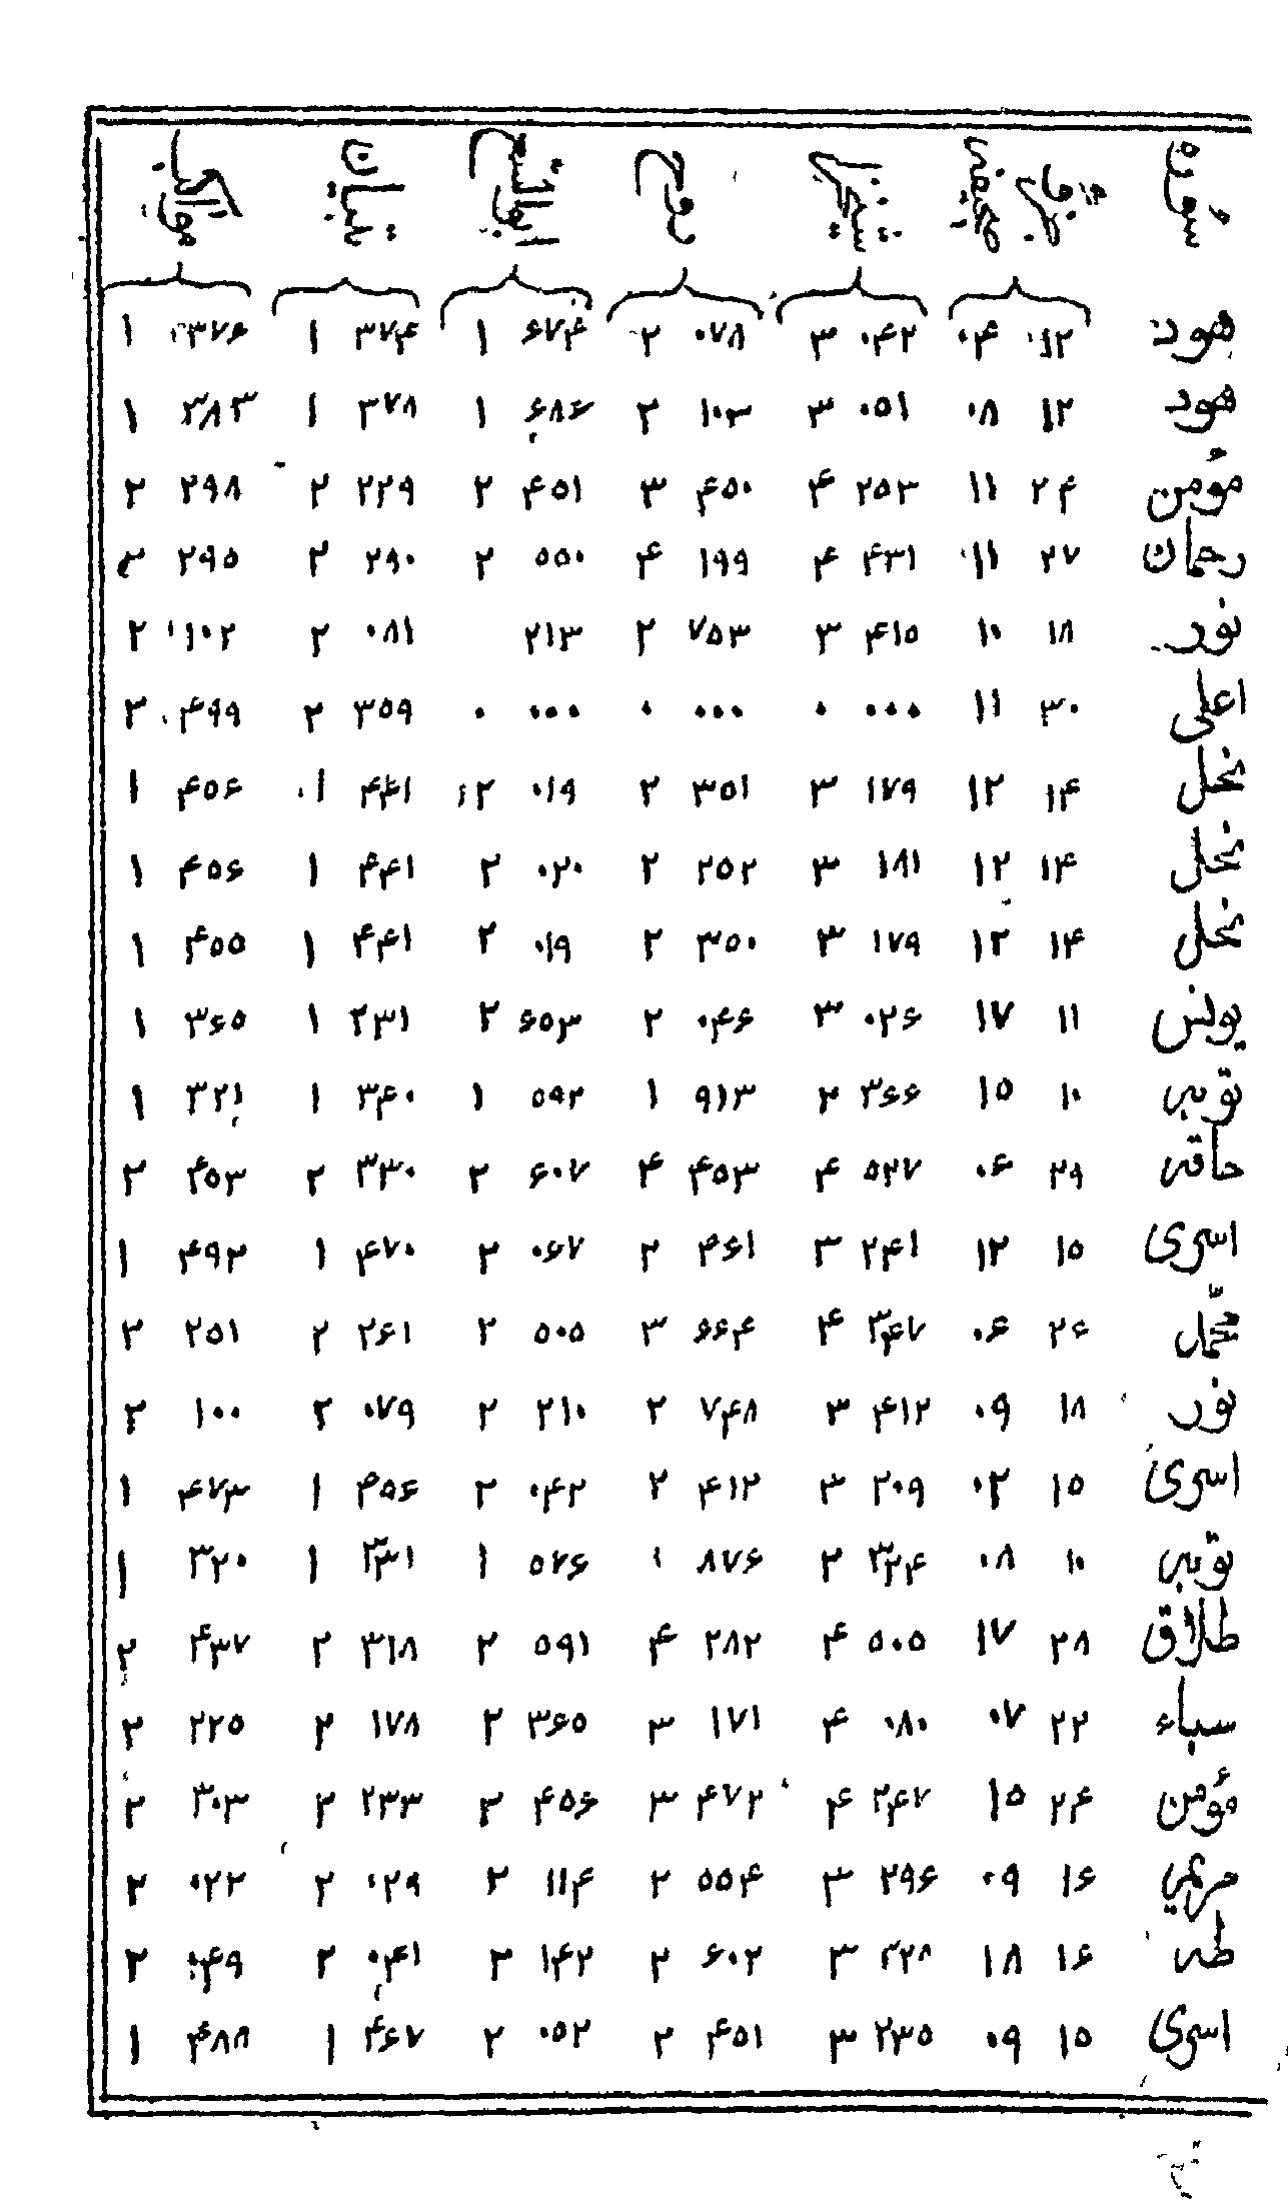 سوره
هود ۱۲ ۰۴ ۰۴۲ ۳ ۰۷۸ ۲ ۶۷۴ ۱ ۳۷۴ ۱ ۳۷۶ ۱
هود ۱۲ ۰۸ ۰۵۱ ۳ ۱۰۳ ۲ ۶۸۶ ۱ ۳۷۸ ۱ ۳۸۳ ۱
مؤمن ۲۴ ۱۱ ۲۵۳ ۴ ۴۵۰ ۳ ۴۵۱ ۲ ۲۲۹ ۲ ۲۹۸ ۲
رحمان ۲۷ ۱۱ ۴۳۱ ۴ ۱۹۹ ۴ ۵۵۰ ۲ ۲۹۰ ۲ ۲۹۵
نور ۱۸ ۱۰ ۴۱۵ ۳ ۷۵۳ ۲ ۲۱۳ ۰۸۱ ۲ ۱۰۲ ۲
اعلی ۳۰ ۱۱ ۰۰۰ ۰ ۰۰۰ ۰ ۰۰۰ ۰ ۳۵۹ ۲ ۴۹۹ ۲
نحل ۱۴ ۱۲ ۱۷۹ ۳ ۳۵۱ ۲ ۰۱۹ ۲ ۴۴۱ ۱ ۴۵۶ ۱
نحل ۱۴ ۱۲ ۱۸۱ ۳ ۲۵۲ ۲ ۰۲۰ ۲ ۴۴۱ ۱ ۴۵۶ ۱
نحل ۱۴ ۱۲ ۱۷۹ ۳ ۳۵۰ ۲ ۰۱۹ ۲ ۴۴۱ ۱ ۴۵۵ ۱
یونس ۱۱ ۱۷ ۰۲۶ ۳ ۰۴۶ ۲ ۶۵۳ ۲ ۲۳۱ ۱ ۳۶۵ ۱
توبه ۱۰ ۱۵ ۳۶۶ ۲ ۹۱۳ ۱ ۵۹۲ ۱ ۳۴۰ ۱ ۳۲۱ ۱
حاقه ۲۹ ۰۶ ۵۲۷ ۴ ۴۵۳ ۴ ۶۰۷ ۲ ۳۳۰ ۲ ۴۵۳ ۲
اسری ۱۵ ۱۲ ۲۴۱ ۳ ۴۶۱ ۲ ۰۶۷ ۲ ۴۷۰ ۱ ۴۹۲ ۱
محمّد ۲۶ ۰۶ ۳۴۷ ۴ ۶۶۴ ۳ ۵۰۵ ۲ ۲۶۱ ۲ ۲۵۱ ۲
نور ۱۸ ۰۹ ۴۱۲ ۳ ۷۴۸ ۲ ۲۱۰ ۲ ۰۷۹ ۲ ۱۰۰ ۲
اسری ۱۵ ۰۲ ۲۰۹ ۳ ۴۱۲ ۲ ۰۴۲ ۲ ۴۵۶ ۱ ۴۷۳ ۱
توبه ۱۰ ۰۸ ۳۲۴ ۲ ۸۷۶ ۱ ۵۷۶ ۱ ۳۳۱ ۱ ۳۲۰ ۱
طلاق ۲۸ ۱۷ ۵۰۵ ۴ ۲۸۲ ۴ ۵۹۱ ۲ ۳۱۸ ۲ ۴۳۷ ۲
سباء ۲۲ ۰۷ ۰۸۰ ۴ ۱۷۱ ۳ ۳۶۵ ۲ ۱۷۸ ۲ ۲۲۵ ۲
مؤمن ۲۴ ۱۵ ۲۴۷ ۴ ۴۷۲ ۳ ۴۵۶ ۲ ۲۳۳ ۲ ۳۰۳ ۲
مریم ۱۶ ۰۹ ۲۹۶ ۳ ۵۵۴ ۲ ۱۱۴ ۲ ۰۲۹ ۲ ۰۲۲ ۲
طه ۱۶ ۱۸ ۳۲۸ ۳ ۶۰۲ ۲ ۱۴۲ ۲ ۰۴۱ ۲ ۰۴۹ ۲
اسری ۱۵ ۰۹ ۲۳۵ ۳ ۴۵۱ ۲ ۰۵۲ ۲ ۴۶۷ ۱ ۴۸۸ ۱